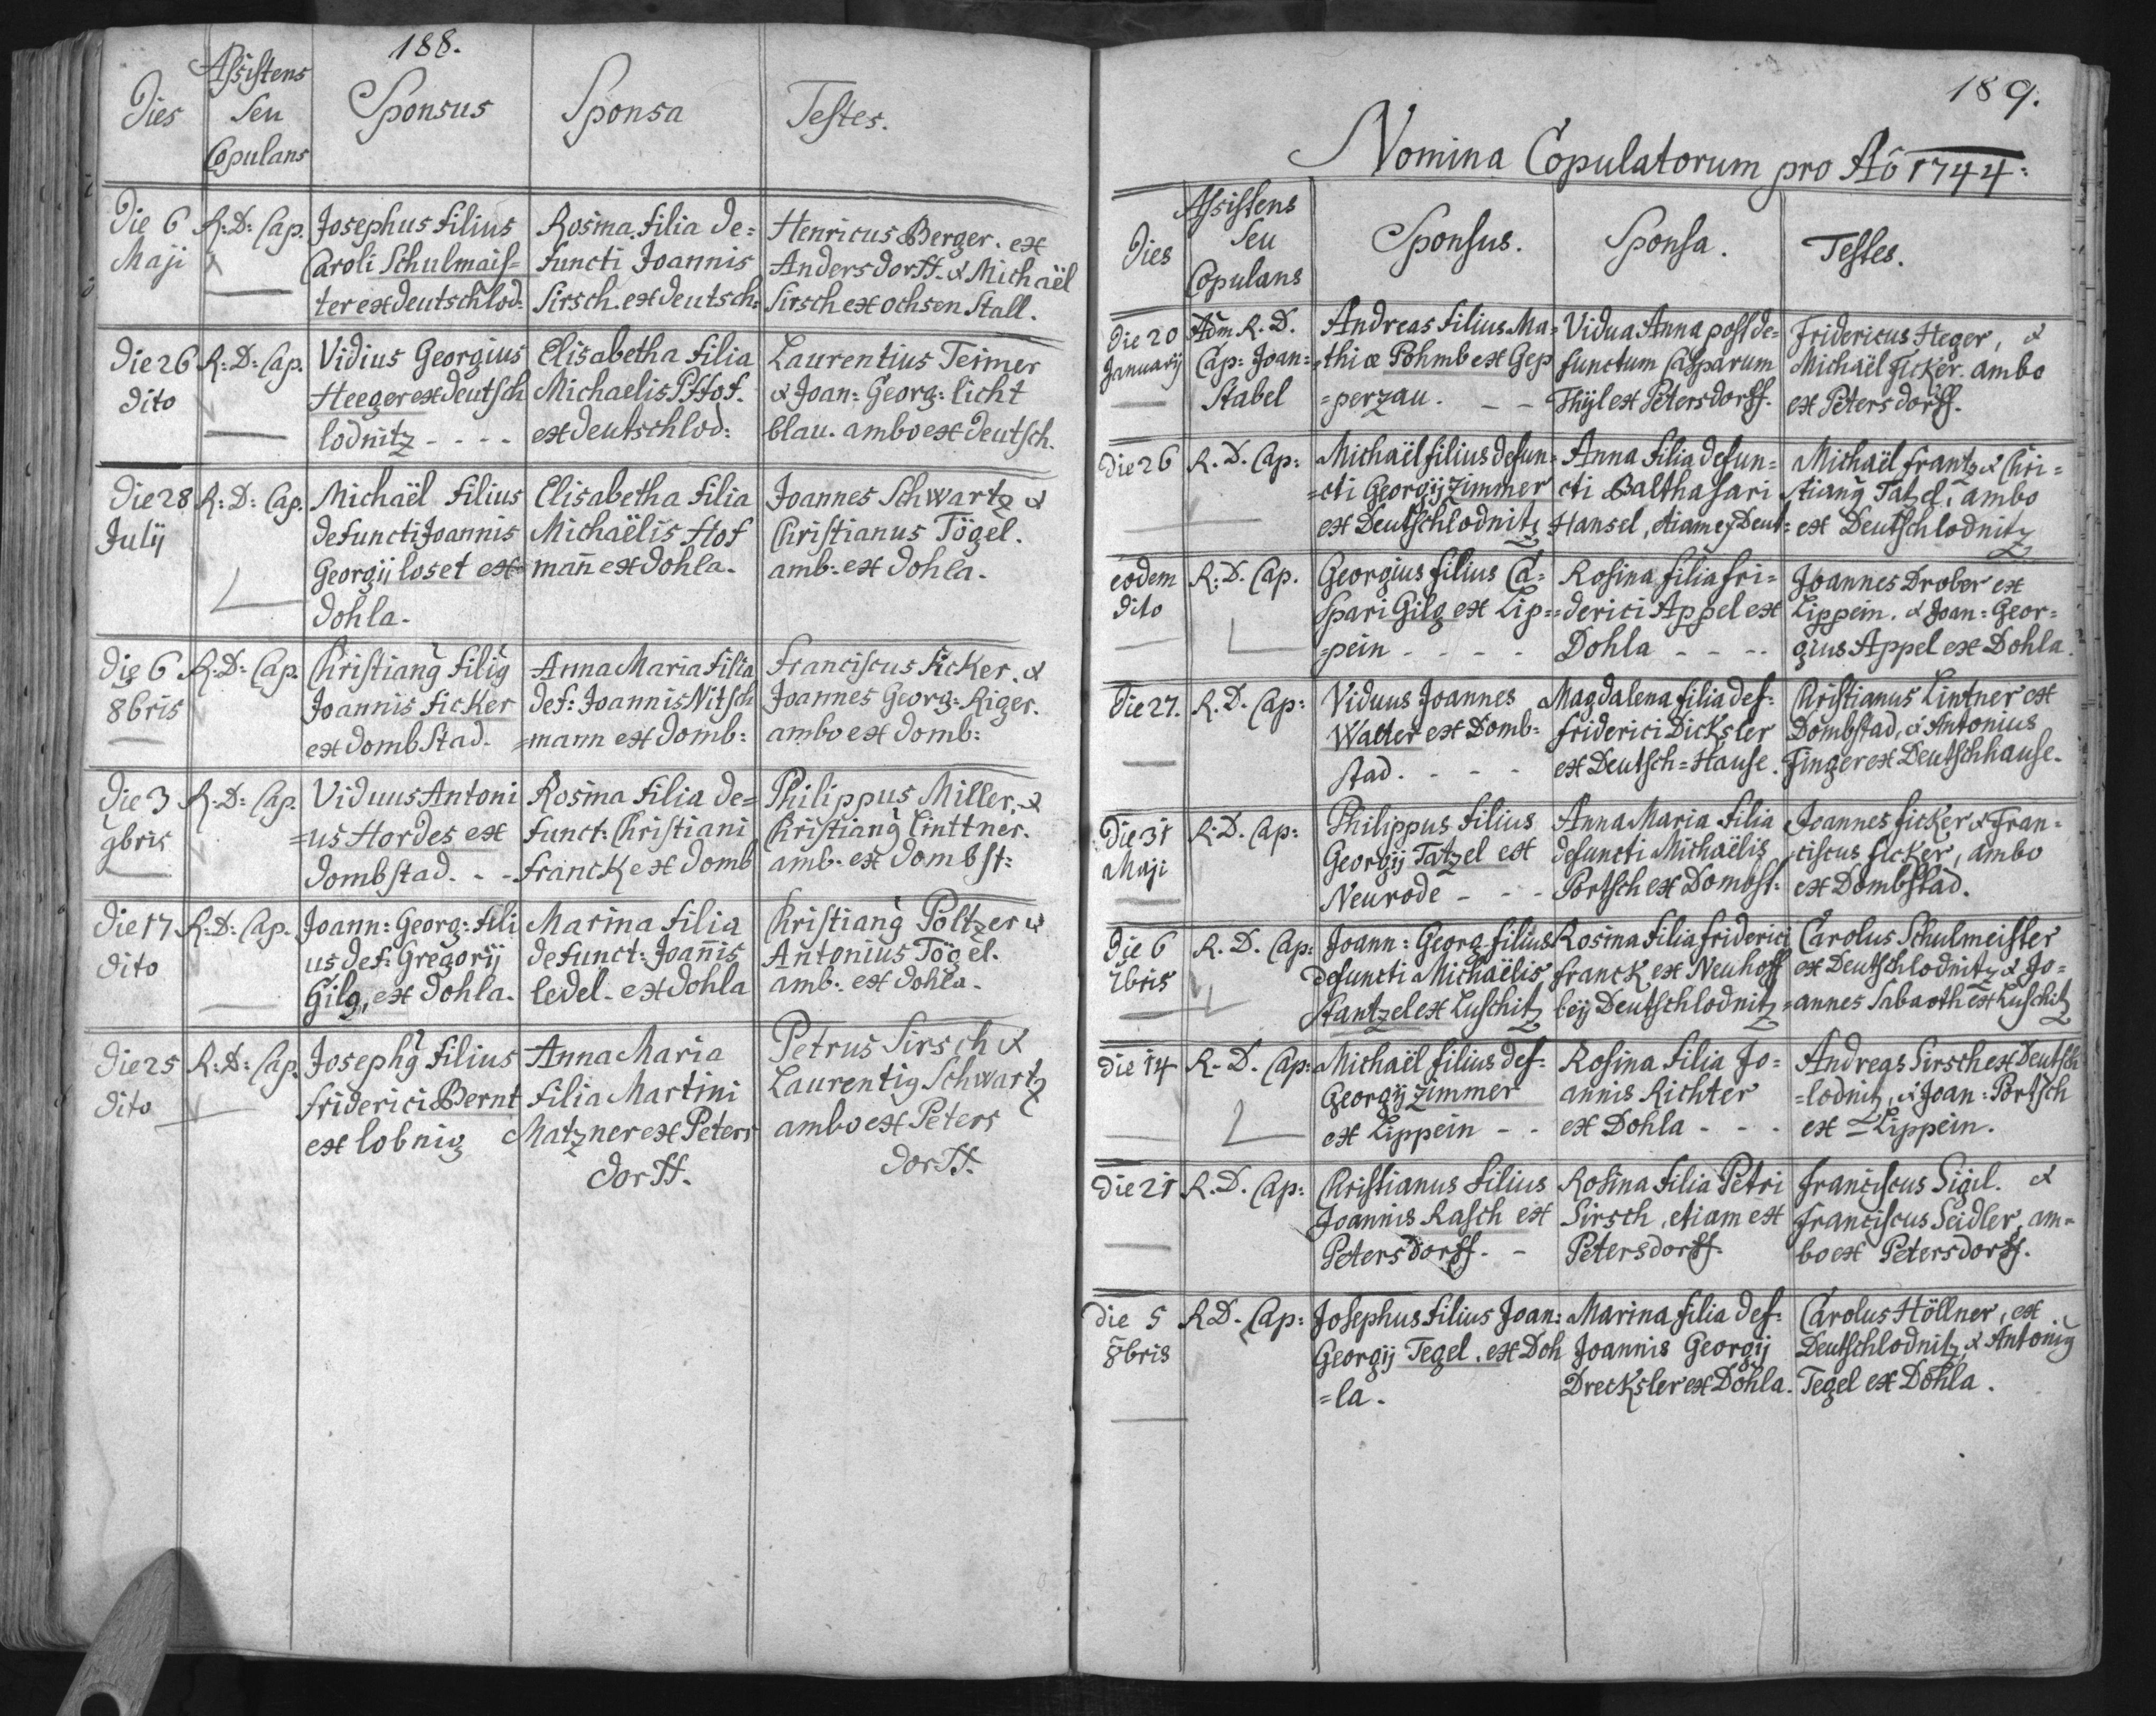 188.
Dies
Assistens
seu
Copulans
Sponsus
Sponsa
Testes.
Die 6
Maji
R: D: Cap.
Josephus filius
Caroli Schulmais=
ter ex deutschlod:
Rosina filia de=
functi Joannis
Sirsch. ex deutsch:
Henricus Berger. ex
Andersdorff. & Michaël
Sirsch ex ochsen Stall.
Die 26
dito
R: D: Cap.
Vidius Georgius
Heeger ex deutsch
lodnitz - - - -
Elisabetha filia
Michaelis Hof.
ex deutschlod:
Laurentius Teimer
& Joan: Georg: licht
blau. ambo ex deutsch.
Die 28
Julij
R: D: Cap.
Michaël filius
defuncti Joannis
Georgij loset ex
Dohla.
Elisabetha filia
Michaëlis Hof
man̄ ex Dohla.
Joannes Schwartz &
Christianus Tögel.
amb: ex Dohla.
Die 6
8bris
R: D: Cap.
Christiang filig
Joannis ficker
ex dombstad.
Anna Maria filia
def: Joannis Nitsch
=mann ex Domb:
Franciscus ficker. &
Joannes Georg: Riger.
ambo ex Domb:
Die 3
9bris
R: D: Cap.
Viduus Antoni
=us Hordes ex
dombstad. - -
Rosina filia de=
funct: Christiani
franck ex Domb
Philippus Miller, &
Christiang linttner.
amb: ex dombst:
Die 17
dito
R: D: Cap.
Joann: Georg: fili
us def: Gregorij
Gilg, ex Dohla.
Marina filia
defunct: Joan̄is
ledel. ex Dohla
Christiang Poltzer &
Antonius Tögel.
amb: ex Dohla.
Die 25
dito
R: D: Cap.
Josephg filius
friderici Bernt
ex lobnig
Anna Maria
filia Martini
Matzner ex Peters
dorff.
Petrus Sirsch &
Laurentig Schwartz
ambo ex Peters
dorff.
189.
Nomina Copulatorum pro Aō 1744:
Dies
Assistens
seu
Copulans
Sponsus.
Sponsa.
Testes.
Die 20
Januarij
Adm R. D.
Cap: Joan=
Stabel
Andreas filius Ma=
=thiæ Pohmb ex Gep
=perzau. - -
Vidua Anna post de=
functum Casparum
Thÿl ex Petersdorff.
Fridericus Heger, &
Michaël Ficker. ambo
ex Petersdorff.
Die 26
R. D. Cap:
Michaël filius defun=
=cti Georgij Zimmer
ex Deutschlodnitz
Anna filia defun=
cti Balthasari
Hansel, etiam ex Deut=
Michaël frantz & Chri=
stiang Tatzel, ambo
ex Deutschlodnitz
eodem
dito
R: D. Cap.
Georgius filius Ca=
spari Gilg ex Lip=
=pein - - - -
Rosina filia fri=
=derici Appel ex
Dohla - - - -
Joannes Drober ex
Lippein. & Joan= Geor=
gius Appel ex Dohla.
Die 27.
R. D. Cap:
Viduus Joannes
Walter ex Domb=
stad. - - -
Magdalena filia def:
friderici Dicksler
ex Deutsch=Hause.
Christianus Lintner ex
Dombstad, & Antonius
Finger ex Deutschhause.
Die 31
Maji
R: D. Cap:
Philippus filius
Georgij Tatzel ex
Neurode - - -
Anna Maria filia
defuncti Michaëlis
Portsch ex Dombst:
Joannes ficker & Fran=
ciscus ficker, ambo
ex Dombstad.
Die 6
7bris
R. D. Cap:
Joann: Georg filius
defuncti Michaëlis
Stantzel ex Luschitz
Rosina filia friderici
franck ex Neuhoff
beij Deutschlodnitz
Carolus Schulmeister
ex Deutschlodnitz & Jo=
=annes Sabaoth ex Luschitz
die 14
R. D. Cap:
Michaël filius def=
Georgij Zimmer
ex Lippein - -
Rosina filia Jo=
annis Richter
ex Dohla - - -
Andreas Sirsch ex Deutsch
=lodnitz, & Joan: Portsch
ex = Lippein.
Die 21
R. D. Cap:
Christianus filius
Joannis Rasch ex
Petersdorff. -
Rosina filia Petri
Sirsch, etiam ex
Petersdorff.
Franciscus Sigil. &
Franciscus Seidler, am=
bo ex Petersdorff.
Die 5
8bris
R. D. Cap:
Josephus filius Joan:
Georgij Tegel, ex Doh
=la.
Marina filia def:
Joannis Georgij
Drecksler ex Dohla.
Carolus Höllner, ex
Deutschlodnitz, & Antonig
Tegel ex Dohla.